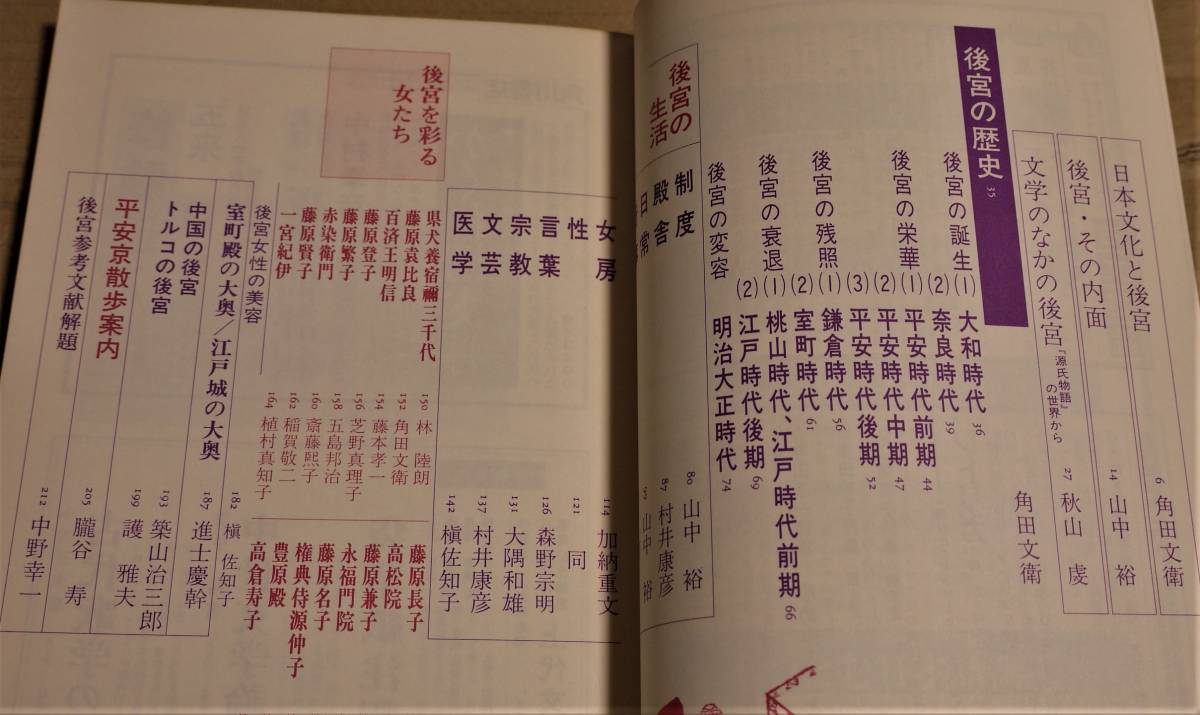 日本文化と後宮 6 角田文衛
後宮・その内面 14 山中 裕
文学のなかの後宮 『源氏物語』の世界から 27 秋山 虔
後宮の歴史 35 角田文衛
後宮の誕生 (1) 大和時代 36
(2) 奈良時代 39
後宮の栄華 (1) 平安時代前期 44
(2) 平安時代中期 47
(3) 平安時代後期 52
後宮の残照 (1) 鎌倉時代 56
(2) 室町時代 61
後宮の衰退 (1) 桃山時代、江戸時代前期 66
(2) 江戸時代後期 69
後宮の変容 明治大正時代 74
後宮の生活
制度 80 山中 裕
殿舎 87 村井康彦
日常 山中 裕
女房 114 加納重文
女性 121 同
言葉 126 森野宗明
宗教 131 大隅和雄
文芸 137 村井康彦
医学 142 槇佐知子
後宮を彩る女たち
県犬養宿禰三千代 150 林 陸朗
藤原袁比良
百済王明信 152 角田文衛
藤原登子 154 藤本孝一
藤原繁子 156 芝野真理子
赤染衛門 158 五島邦治
藤原賢子 160 斎藤熙子
一宮紀伊 162 稲賀敬二
164 植村真知子
藤原長子
高松院
藤原兼子
永福門院
藤原名子
権典侍源仲子
豊原殿
高倉寿子
後宮女性の美容 182 槇 佐知子
室町殿の大奥/江戸城の大奥 187 進士慶幹
中国の後宮 193 築山治三郎
トルコの後宮 199 護 雅夫
平安京散歩案内 205 朧谷 寿
後宮参考文献解題 212 中野幸一